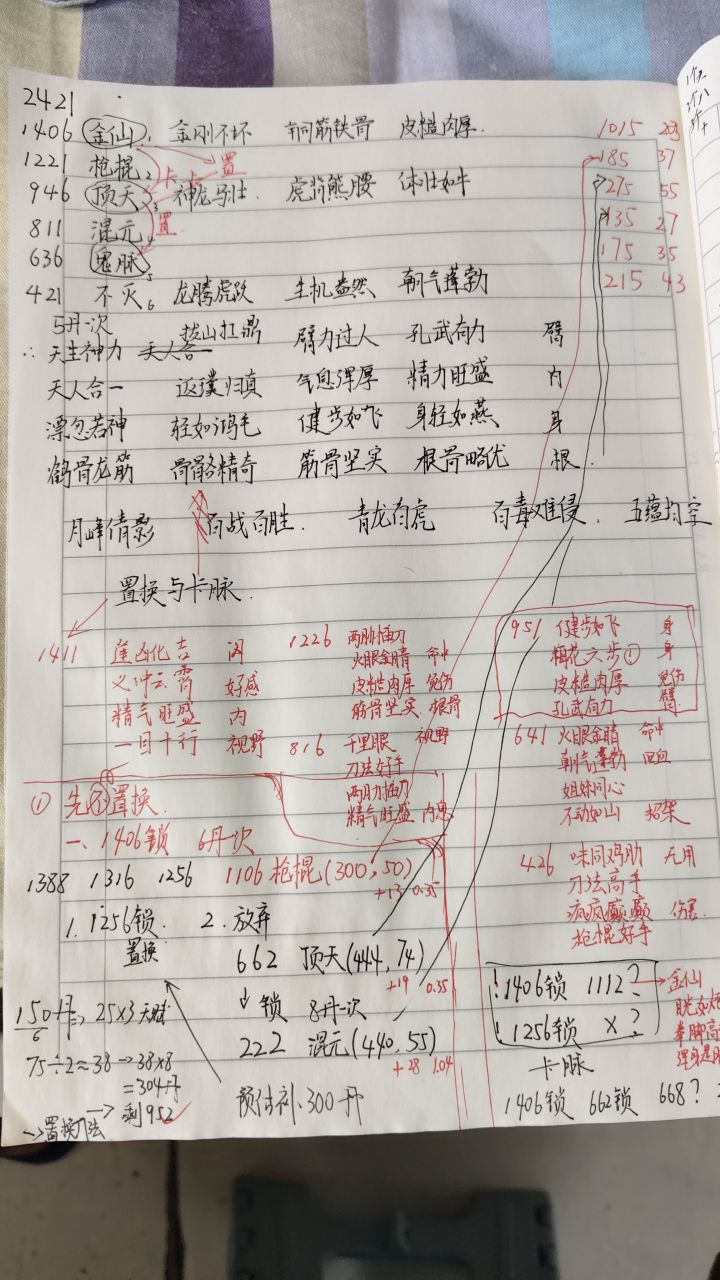 2421
1406 金仙1 金刚不坏 铜筋铁骨 皮糙肉厚. 1015 203
1221 枪棍2 卡 卡 置 185 37
946 顶天3 神龙马壮 虎背熊腰 体壮如牛 275 55
811 混元4 置 135 27
636 鬼脉5 175 35
421 不灭6 龙腾虎跃 生机盎然 朝气蓬勃 215 43
5丹一次 拔山扛鼎 臂力过人 孔武有力 臂
∴ 天生神力 天人合一
天人合一 返璞归真 气息浑厚 精力旺盛 内
漂忽若神 轻如鸿毛 健步如飞 身轻如燕 身
鹤骨龙筋 骨骼精奇 筋骨坚实 根骨略优 根.
月峰倩影 百战百胜. 青龙白虎 百毒难侵. 五蕴均空
置换与卡脉.
1411 逢凶化吉 闪
义冲云霄 好感
精气旺盛 内
一目十行 视野
1226 两肋插刀
火眼金睛 命中
皮糙肉厚 免伤
筋骨坚实 根骨
816 千里眼 视野
刀法好手
两肋插刀
精气旺盛 内息
951 健步如飞 身
梅花六步① 身
皮糙肉厚 免伤
孔武有力 臂
641 火眼金睛 命中
朝气蓬勃 回血
姐妹同心
不动如山 招架
426 味同鸡肋 无用
刀法高手
疯疯癫癫 伤害
枪棍好手
① 先置换.
一、1406锁 6丹一次
1388 1316 1256 1106 枪棍(300,50)
+13 0.35
1. 1256锁. 2. 放弃
置换 662 顶天(444,74)
+19 0.35
锁 8丹一次
222 混元(440,55)
+28 1.04
150丹/6 => 25×3天赋
75÷2≈38 → 38×8
=304丹
→ 剩952
→置换刀法
预估补、300丹
! 1406锁 1112? → 金仙
! 1256锁 X?
目光如炬
拳脚高
浑身是胆
卡脉
1406锁 662锁 668?